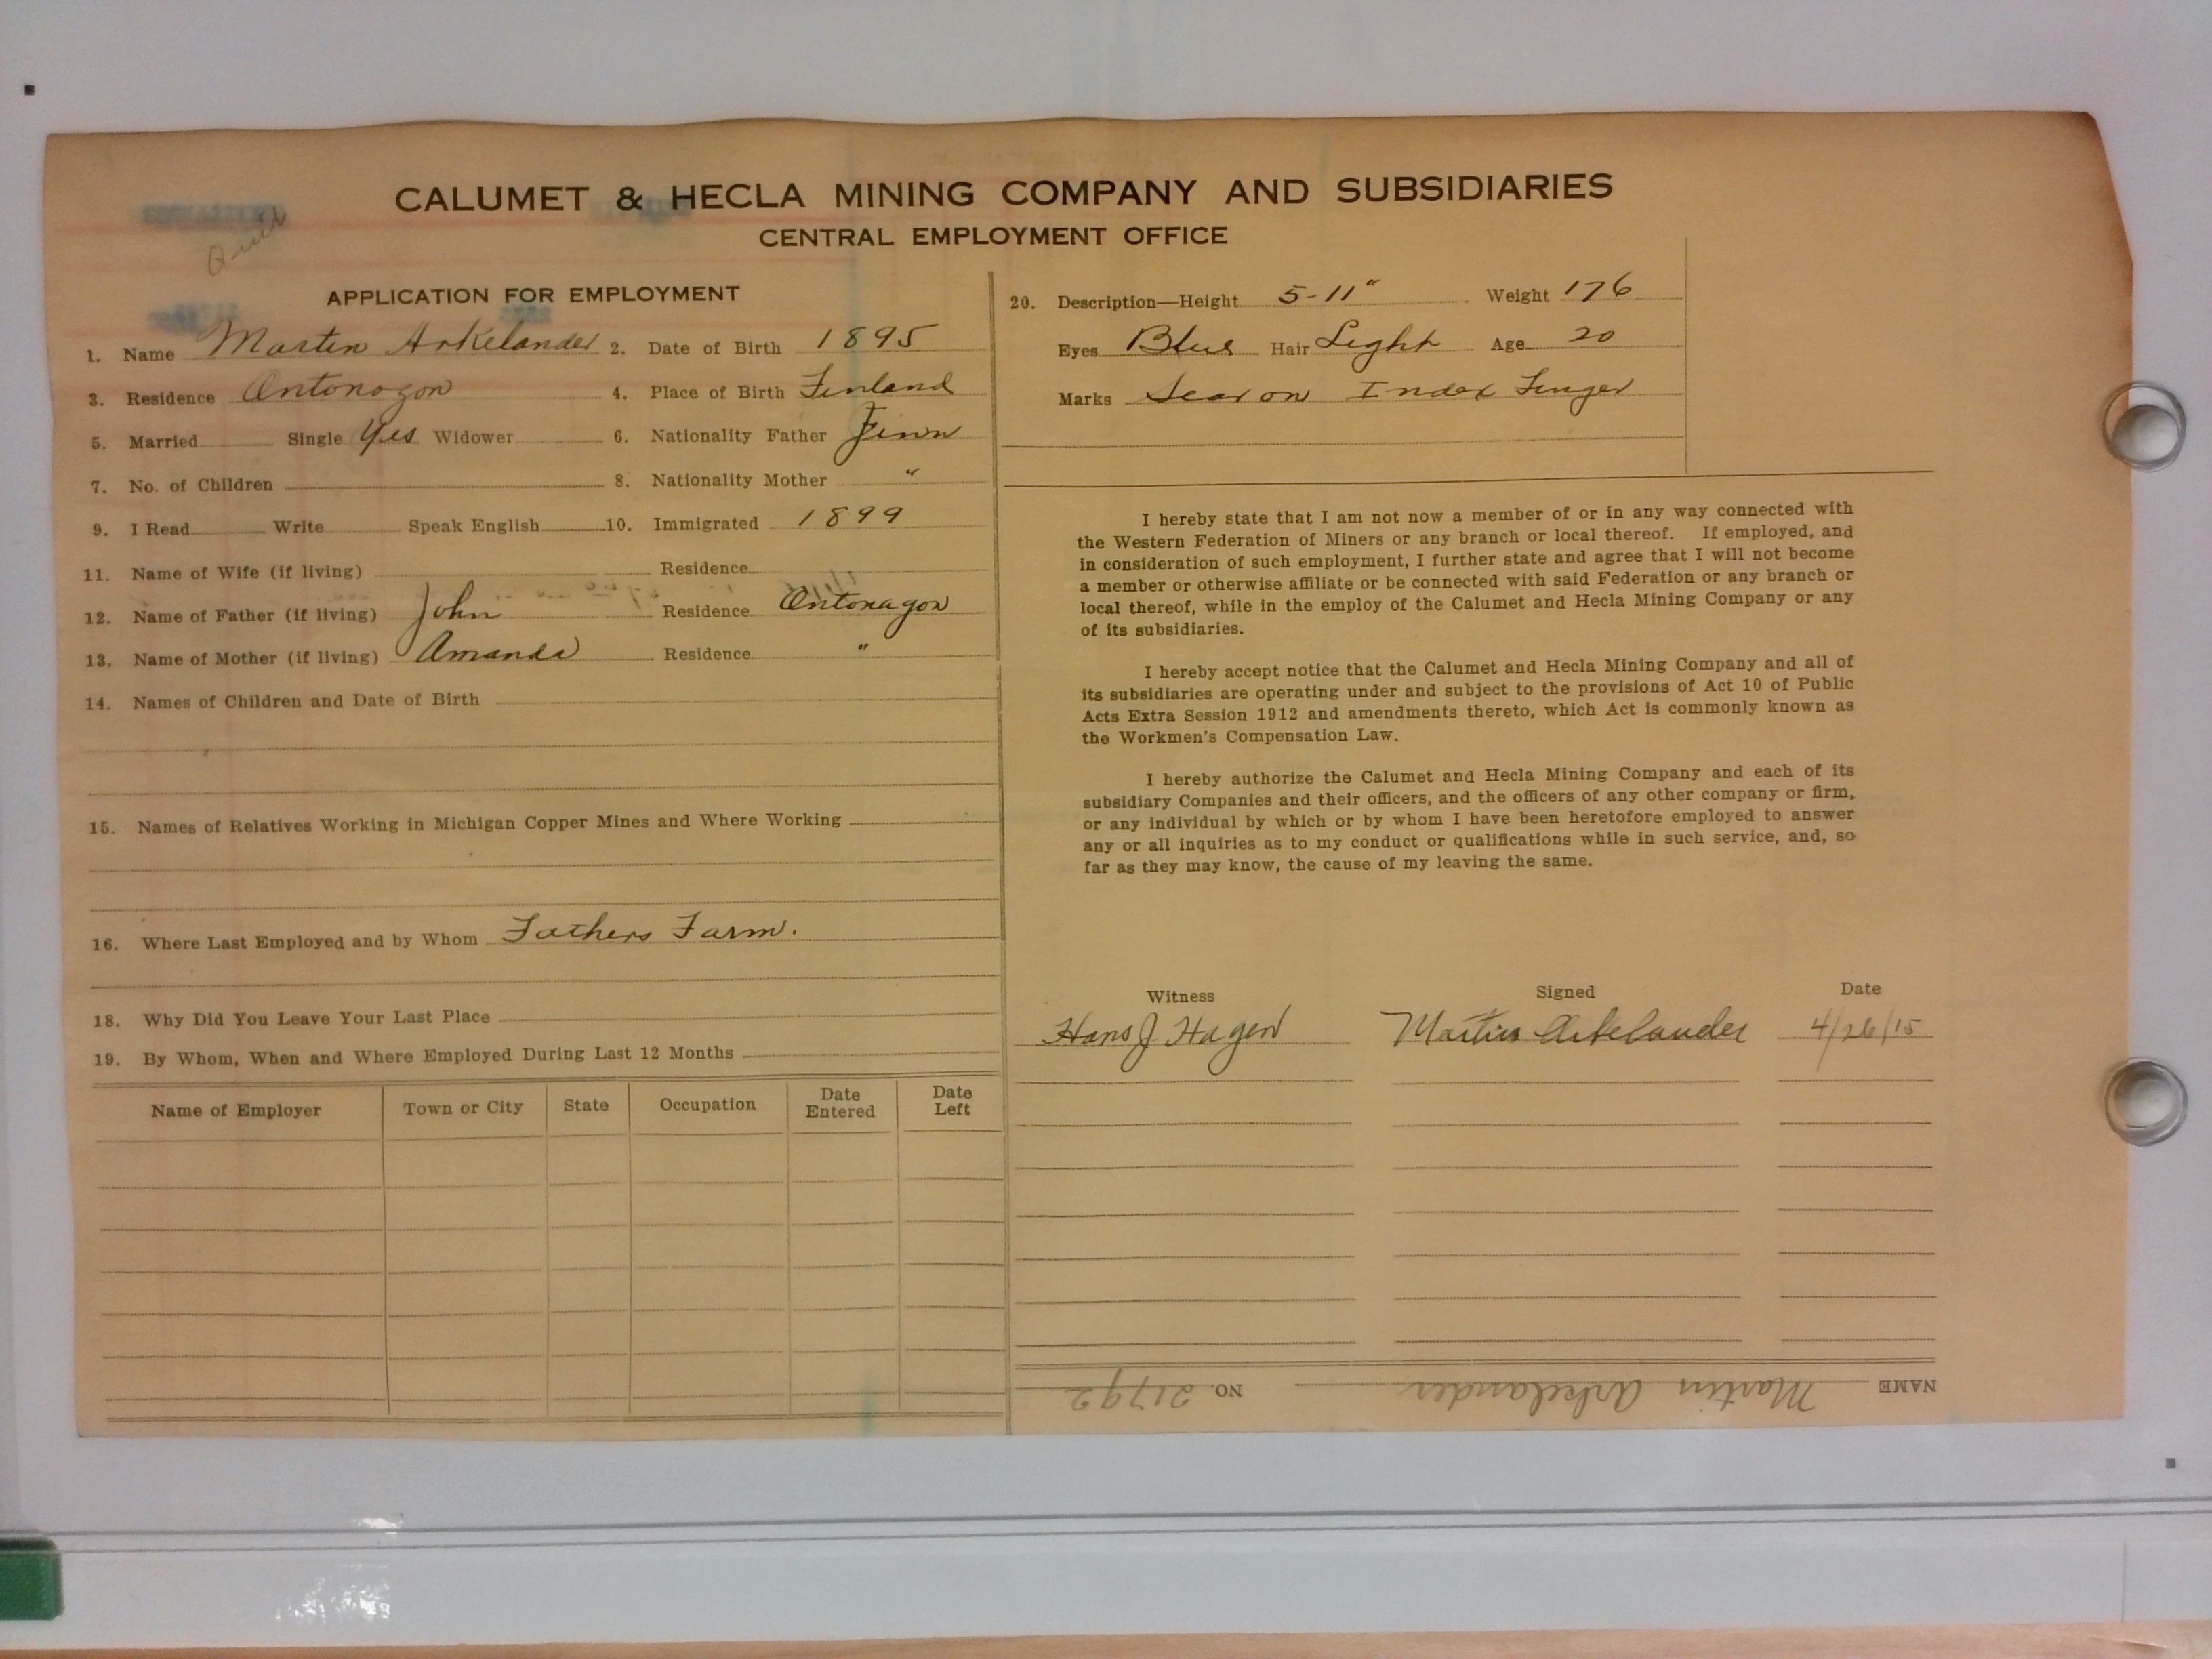 CALUMET & HECLA MINING COMPANY AND SUBSIDIARIES
CENTRAL EMPLOYMENT OFFICE
Quit
APPLICATION FOR EMPLOYMENT
1. Name Martin Arkelander 2. Date of Birth 1895
3. Residence Ontonogon 4. Place of Birth Finland
5. Married Single Yes Widower 6. Nationality Father Finn
7. No. of Children 8. Nationality Mother "
9. I Read Write Speak English 10. Immigrated 1899
11. Name of Wife (if living) Residence
12. Name of Father (if living) John Residence Ontonagon
13. Name of Mother (if living) Amanda Residence "
14. Names of Children and Date of Birth
15. Names of Relatives Working in Michigan Copper Mines and Where Working
16. Where Last Employed and by Whom Fathers Farm.
18. Why Did You Leave Your Last Place
19. By Whom, When and Where Employed During Last 12 Months
Name of Employer Town or City State Occupation Date Entered Date Left
20. Description—Height 5-11" Weight 176
Eyes Blue Hair Light Age 20
Marks Scar on Index Finger
I hereby state that I am not now a member of or in any way connected with
the Western Federation of Miners or any branch or local thereof. If employed, and
in consideration of such employment, I further state and agree that I will not become
a member or otherwise affiliate or be connected with said Federation or any branch or
local thereof, while in the employ of the Calumet and Hecla Mining Company or any
of its subsidiaries.
I hereby accept notice that the Calumet and Hecla Mining Company and all of
its subsidiaries are operating under and subject to the provisions of Act 10 of Public
Acts Extra Session 1912 and amendments thereto, which Act is commonly known as
the Workmen's Compensation Law.
I hereby authorize the Calumet and Hecla Mining Company and each of its
subsidiary Companies and their officers, and the officers of any other company or firm,
or any individual by which or by whom I have been heretofore employed to answer
any or all inquiries as to my conduct or qualifications while in such service, and, so
far as they may know, the cause of my leaving the same.
Witness Signed Date
Hans J Hagen Martin Arkelander 4/26/15
NAME Martin Arkelander NO. 21792